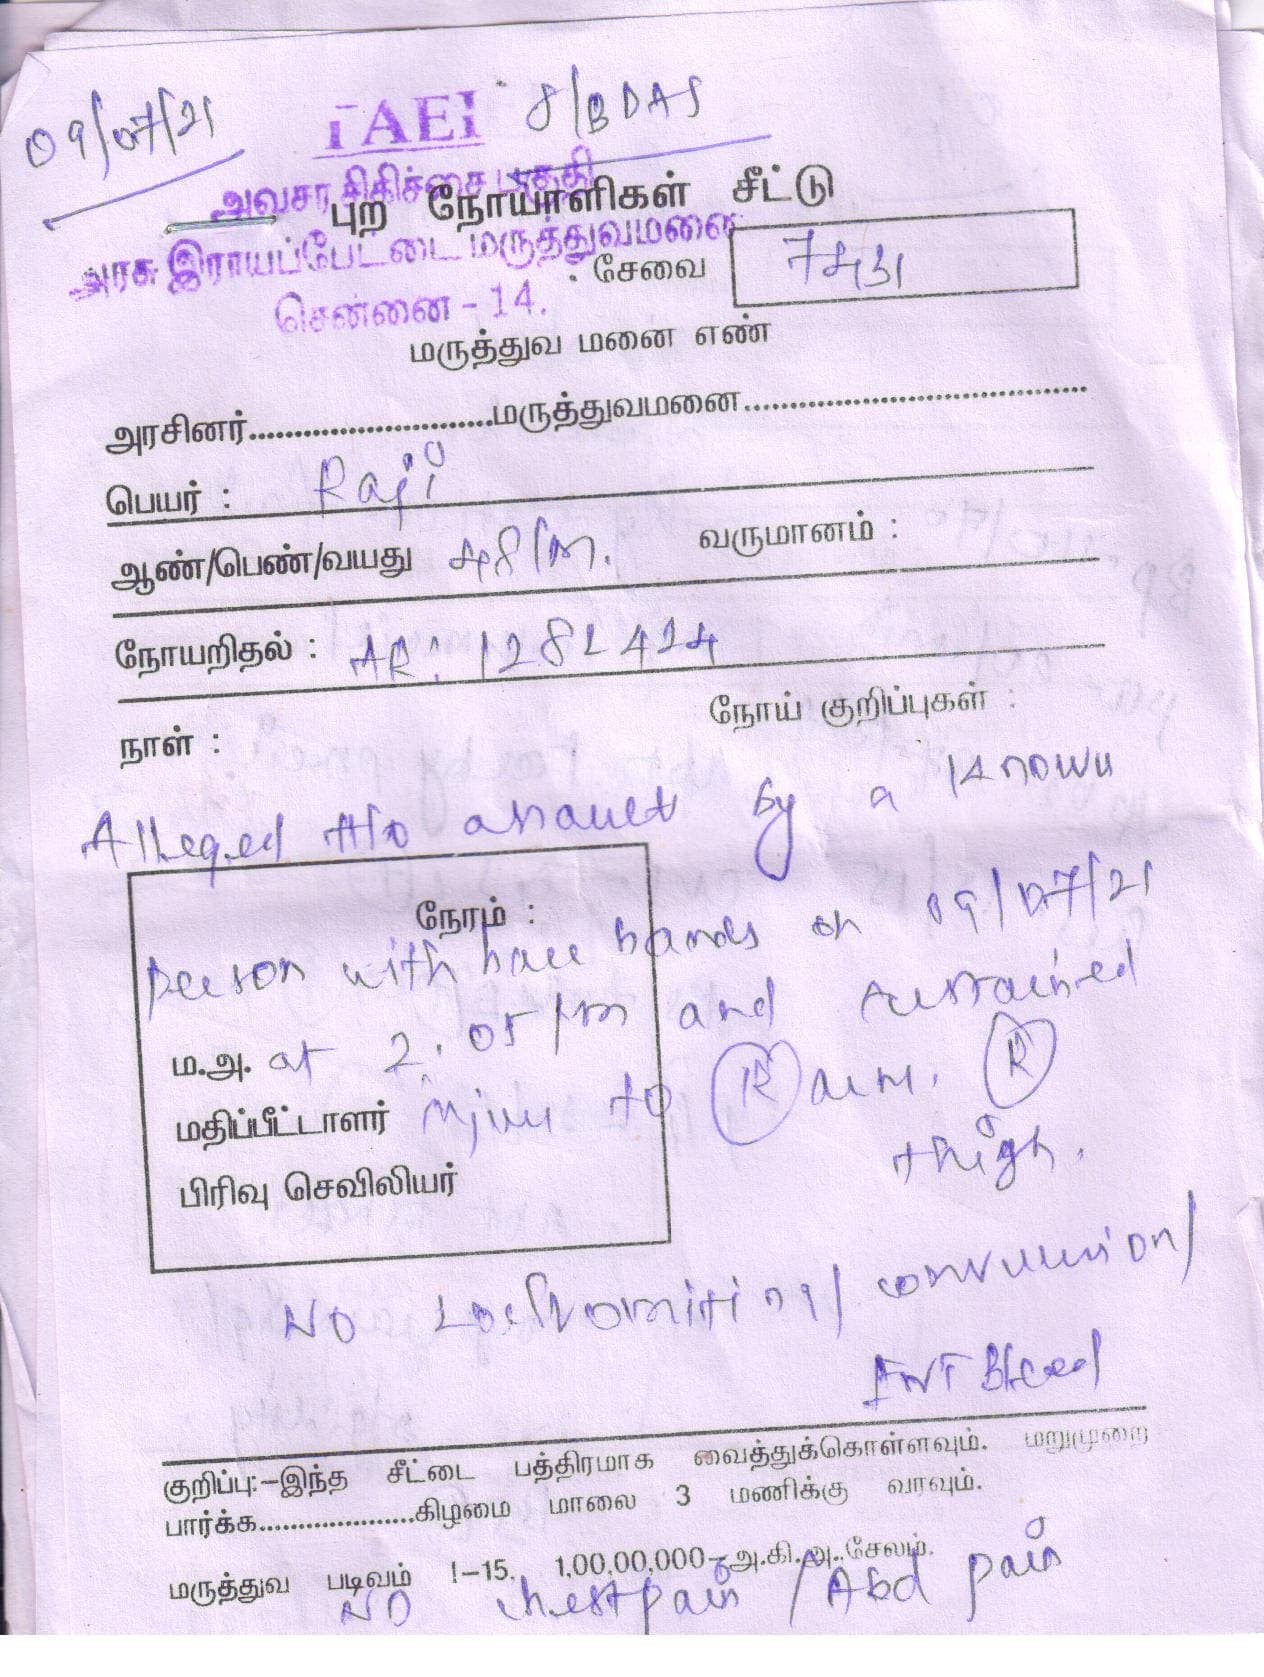 09/07/21
TAEI
8/BDAS
அவசர சிகிச்சை பகுதி
புற நோயாளிகள் சீட்டு
அரசு இராயப்பேட்டை மருத்துவமனை
சென்னை - 14.
: சேவை 7431
மருத்துவ மனை எண்
அரசினர்..........................மருத்துவமனை....................................
பெயர் : Raji
ஆண்/பெண்/வயது 48/m. வருமானம் :
நோயறிதல் : AR: 1282424
நாள் :
நோய் குறிப்புகள் :
Alleged H/o assault by a known
நேரம் :
person with bare hands on 09/07/21
ம.அ. at 2:05 pm and sustained
மதிப்பீட்டாளர் injury to R arm, R
thigh.
பிரிவு செவிலியர்
No LOC/vomiting/convulsion/
ENT Bleed
குறிப்பு:-இந்த சீட்டை பத்திரமாக வைத்துக்கொள்ளவும். மறுமுறை
பார்க்க.....................கிழமை மாலை 3 மணிக்கு வரவும்.
மருத்துவ படிவம் !-15. 1,00,00,000-அ.கி.அ.,சேலம்.
NO chest pain / Abd pain